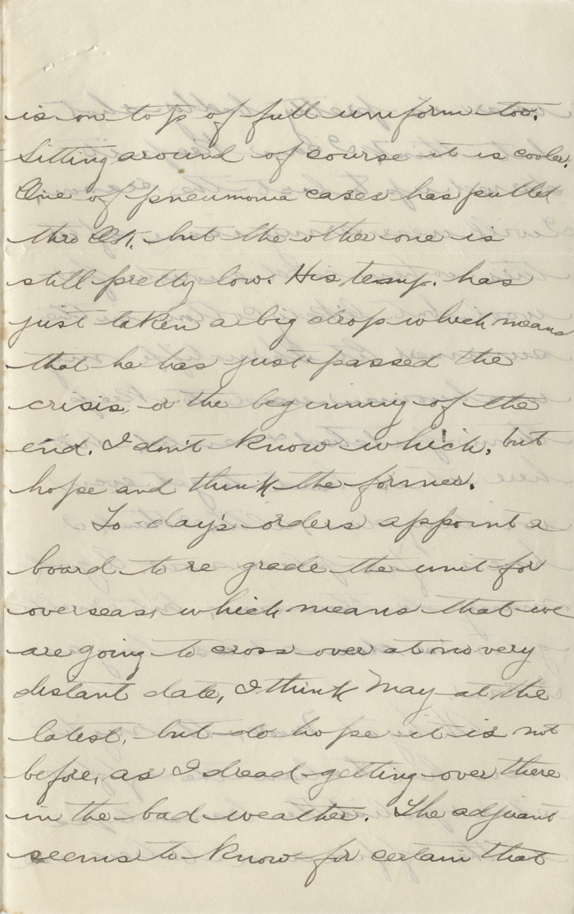 is on top of full uniform too.
Sitting around of course it is cooler.
One of pneumonia cases has pulled
thro OK, but the other one is
still pretty low. His temp. has
just taken a big drop which means
that he has just passed the
crisis, or the beginning of the
end. I don't know which, but
hope and think the former.
To day's orders appoint a
board to re grade the unit for
overseas, which means that we
are going to cross over at no very
distant date, I think May at the
latest, but do hope it is not
before, as I dread getting over there
in the bad weather. The adjutant
seems to know for certain that